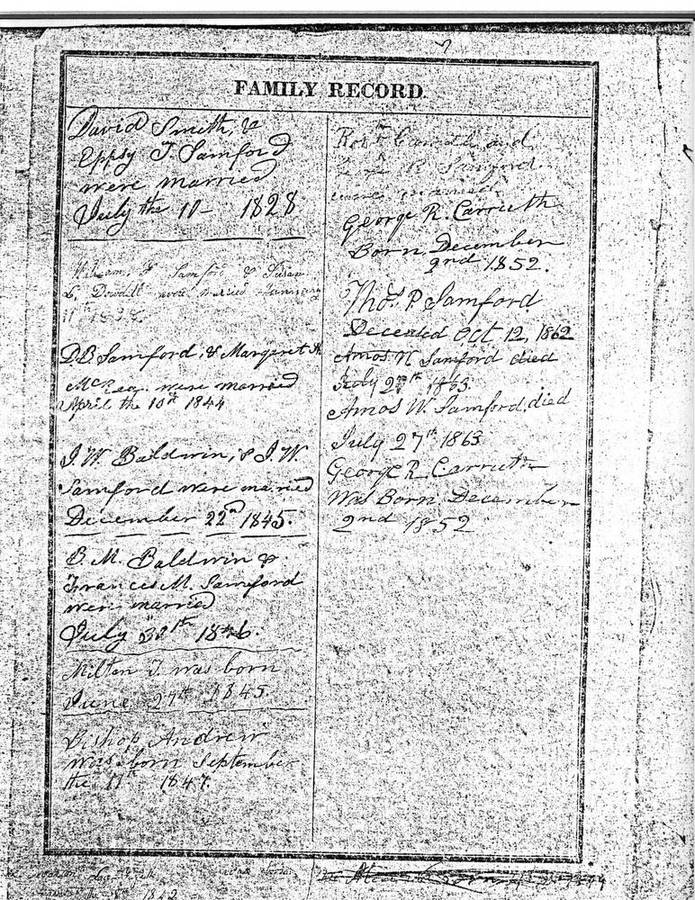 FAMILY RECORD.
David Smith, &
Eppsy T. Samford
were married
July the 10 - 1828
Samford & Susan
Dowdell were married January
11th
D.B. Samford, & Margaret
were married
April the 10th 1844
J. W. Baldwin, & J. W
Samford were married
December 22nd 1845.
B. M. Baldwin &
Frances M. Samford
were married
July 1846.
Milton T. was born
June 27th 1845.
Bishop Andrew
was born September
the 11th 1847.
Carruth and
Samford
were
George R. Carruth
Born December
2nd 1852.
Thos. P. Samford
Deceased Oct 12, 1862
Amos W Samford died
July 27th 1863.
Amos W. Samford, died
July 27th 1863
George R. Carruth
Was Born December
2nd 1852
1842